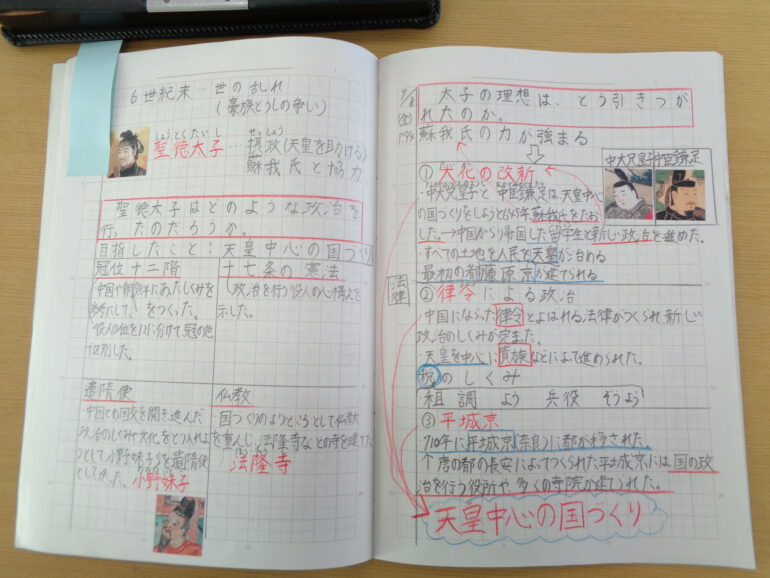 6世紀末…世の乱れ
(豪族どうしの争い)
しょうとくたいし
せっしょう
聖徳太子…摂政(天皇を助ける)
蘇我氏と協力
聖徳太子はどのような政治を
行ったのだろうか。
目指したこと:天皇中心の国づくり
冠位十二階
中国や朝鮮にあたしくみを
参考にして、をつくった。
・役人の位を12に分けて、冠の色
で区別した。
十七条の憲法
政治を行う役人の心構えを
示した。
遣隋使
・中国との国交を開き、進んだ
政治のしくみや文化をとり入れよ
うとして、小野妹子らを遣隋使
として送った。小野妹子
仏教
・国づくりのよりどころとして仏教
を重んじ、法隆寺などの寺を建てた
法隆寺
7/8
(金)
P94
太子の理想は、どう引きつが
れたのか。
蘇我氏の力が強まる
中大兄皇子 中臣鎌足
①大化の改新
中大兄皇子と中臣鎌足は、天皇中心
の国づくりをしようと645年蘇我氏をたお
した。→中国から帰国した留学生と新しい政治を進めた。
・すべての土地を人民を天皇が治める
最初の都藤原京が建てられる
法律
②律令による政治
・中国にならった律令とよばれる法律がつくられ、新しい
政治のしくみが定まった。
・天皇を中心に貴族などによって進められた。
税のしくみ
租 調 よう 兵役 ぞうよう
③平城京
710年に平城京(奈良)に都が移された。
↑唐の都の長安によってつくられた平城京には国の政
治を行う役所や、多くの寺院が建てられた。
天皇中心の国づくり